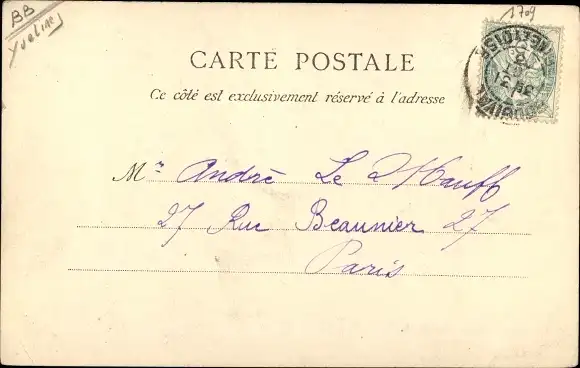 BB
Yvelines
1709
CARTE POSTALE
Ce côté est exclusivement réservé à l'adresse
BOUGIVAL
Mr André Le Hauff
27 Rue Beaunier 27
Paris